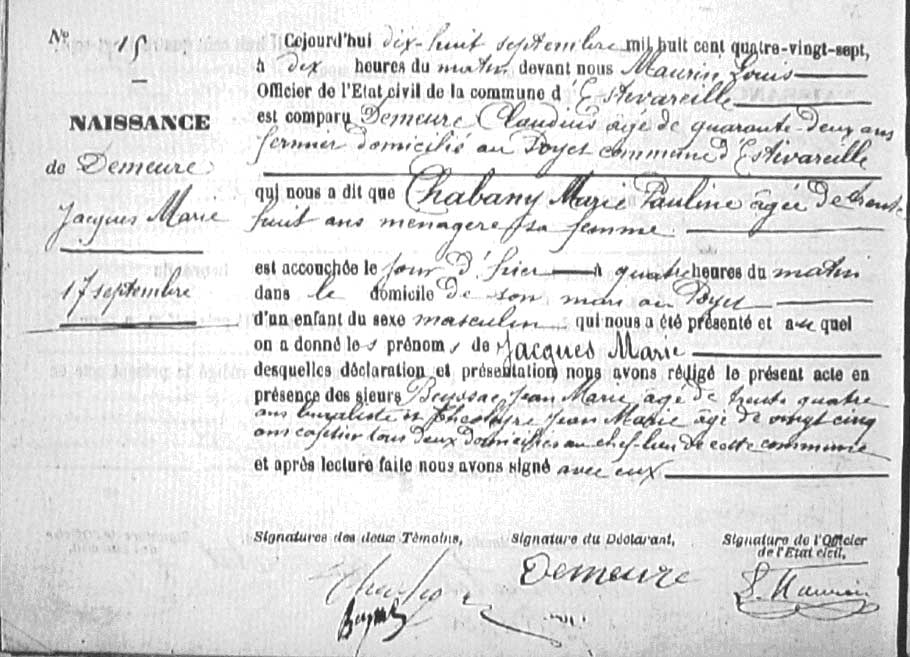 No 15
NAISSANCE
de Demeure
Jacques Marie
17 septembre
Cejourd'hui dix-huit septembre mil huit cent quatre-vingt-sept,
à dix heures du matin, devant nous Maurin, Louis
Officier de l'Etat civil de la commune d'Estivareille
est comparu Demeure Claudius âgé de quarante-deux ans
fermier domicilié au Poyet commune d'Estivareille
qui nous a dit que Chabany Marie Pauline âgée de trente
huit ans ménagère sa femme
est accouchée le jour d'hier à quatre heures du matin
dans le domicile de son mari au Poyet
d'un enfant du sexe masculin qui nous a été présenté et auquel
on a donné les prénoms de Jacques Marie
desquelles déclaration et présentation, nous avons rédigé le présent acte en
présence des sieurs Beyssac, Jean Marie âgé de trente quatre
ans buraliste et Jean Marie âgé de vingt cinq
ans cafetier tous deux domiciliés au chef-lieu de cette commune
et après lecture faite nous avons signé avec eux
Signatures des deux Témoins, Signature du Déclarant, Signature de l'Officier
de l'Etat civil,
Demeure
L. Maurin